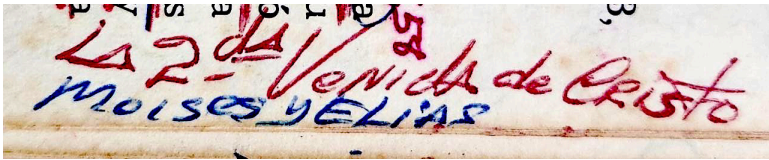 La 2da Venida de Cristo
Moises y ELiAS